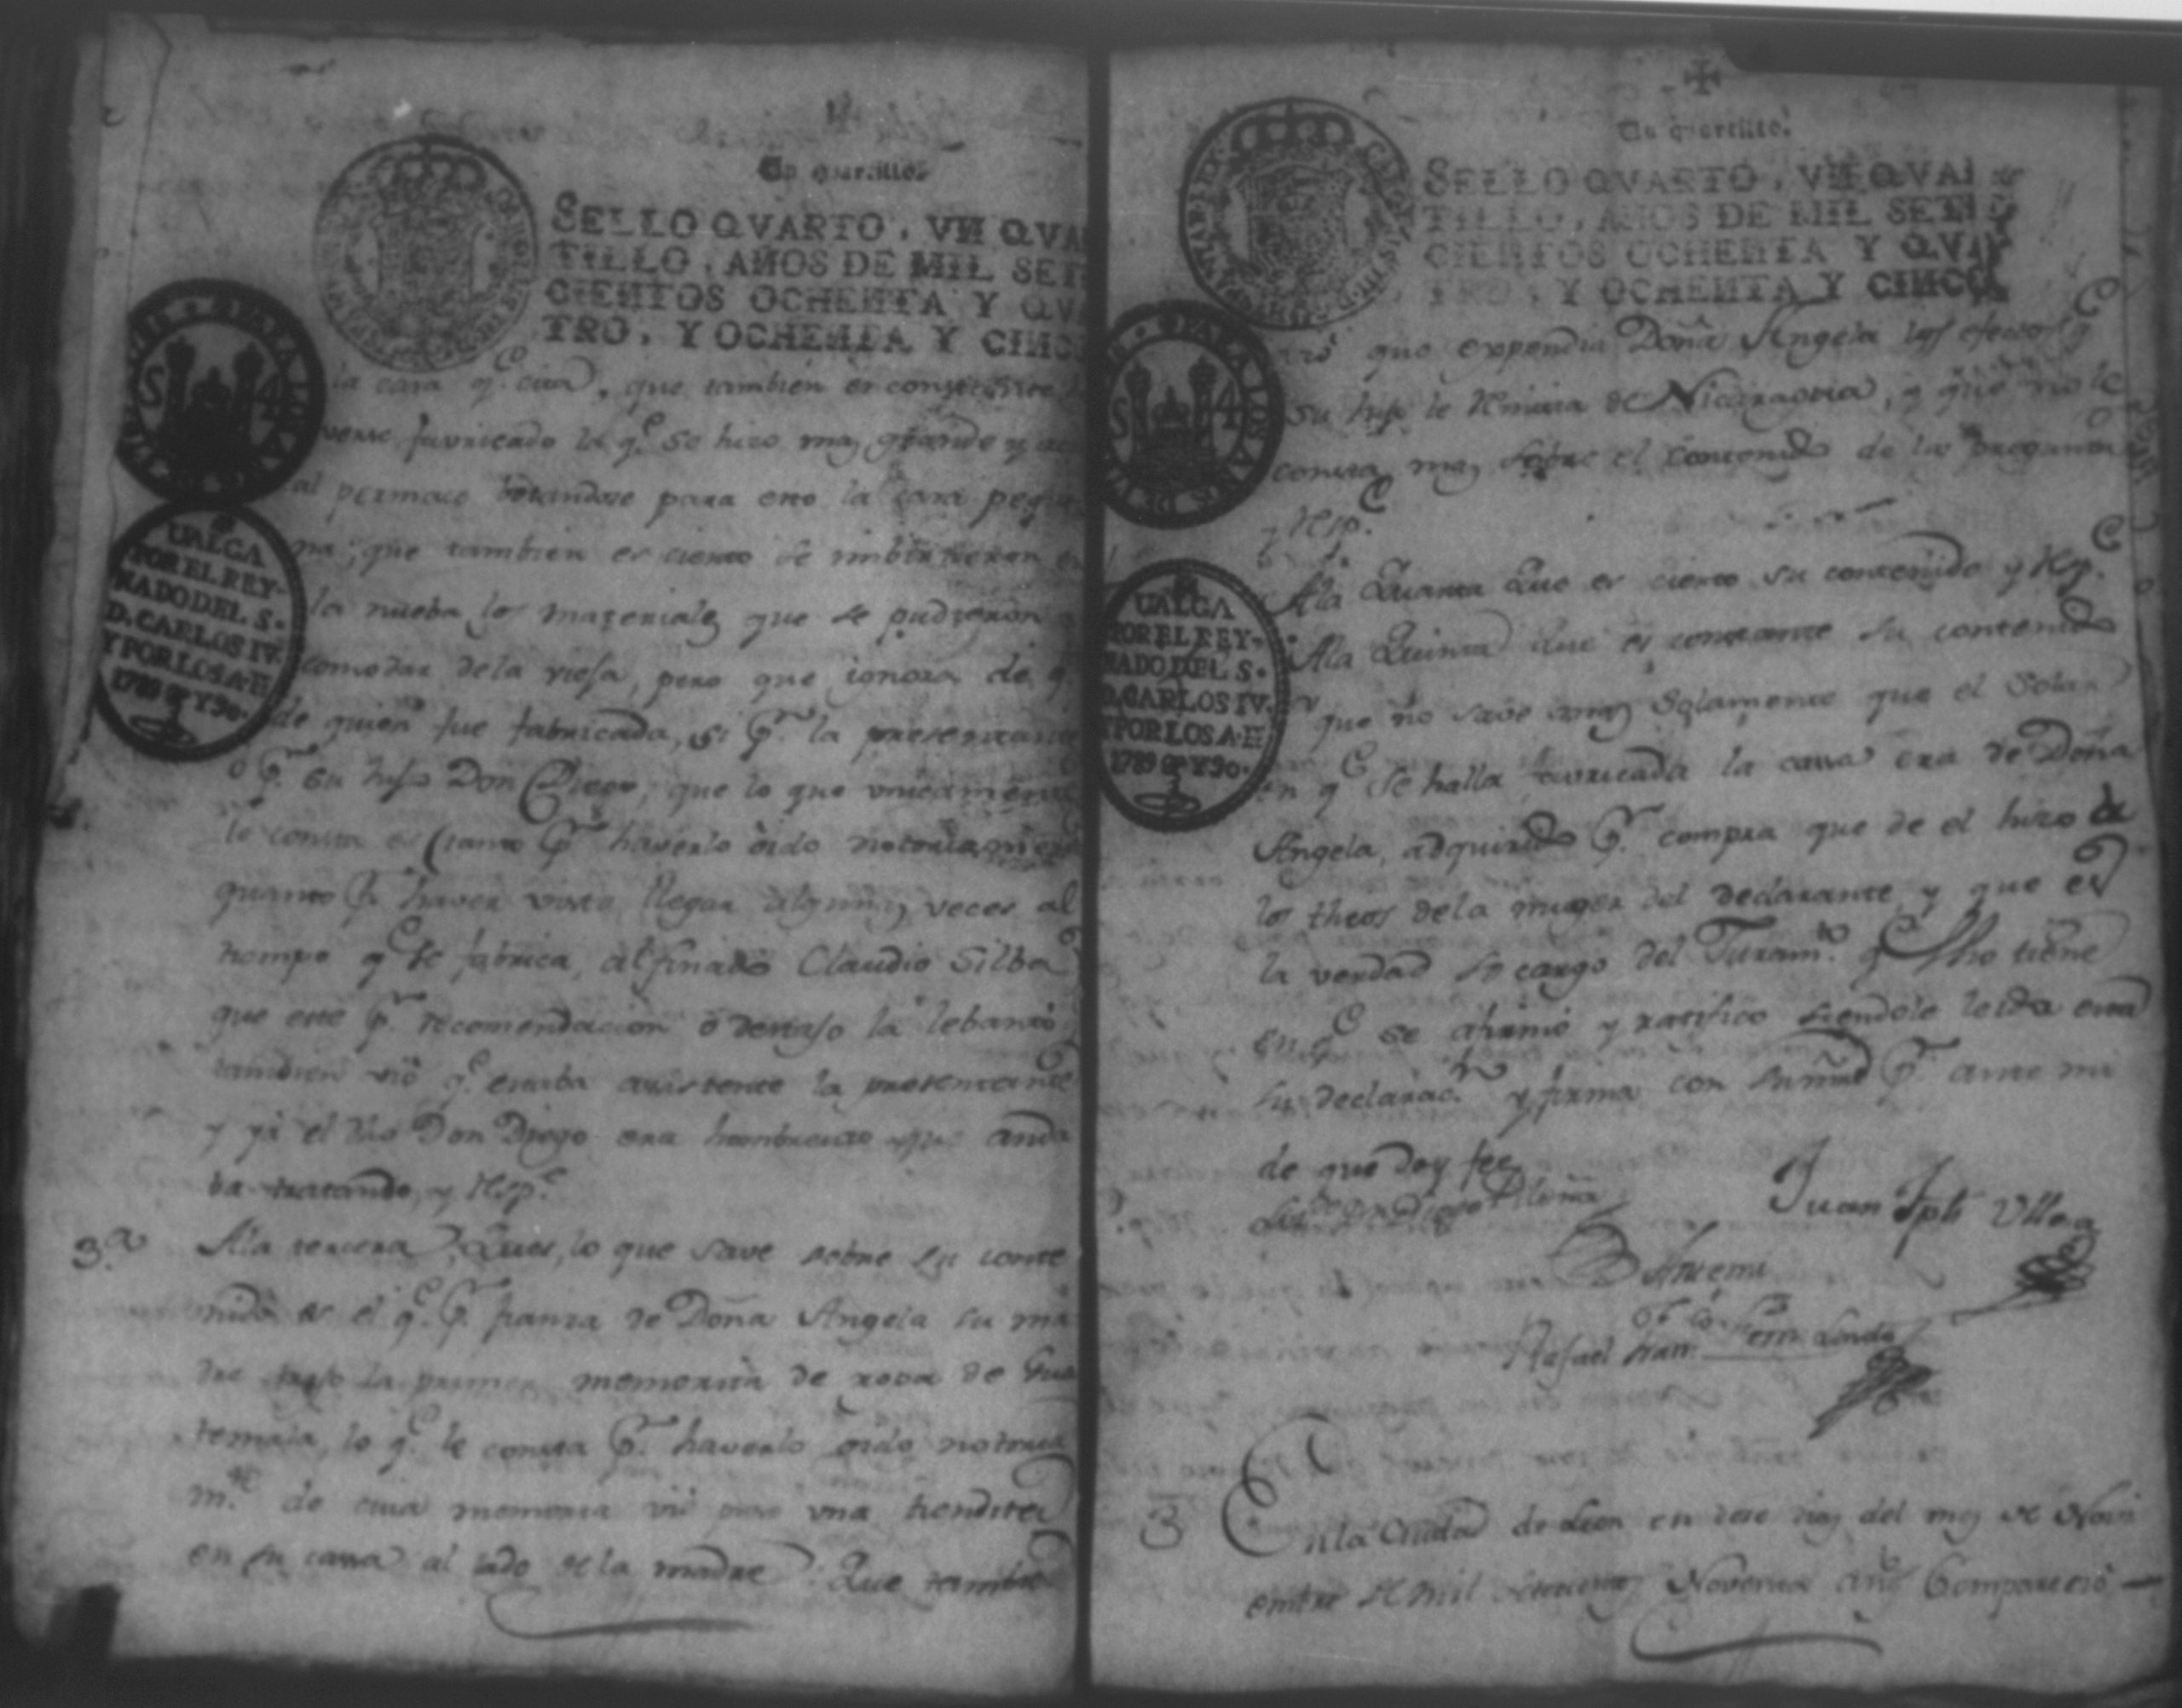 Un quartillo.
SELLO QVARTO, VN QVA
TILLO, AÑOS DE MIL SETE
CIENTOS OCHENTA Y QVA
TRO, Y OCHENTA Y CINCO
S 4
VALGA
POR EL REY-
NADO DEL S.
D. CARLOS IV.
Y POR LOS A. E
1789 Y 90.
la casa q.e cita, que tambien es constante
verse favricado la q.e se hizo mas grande y
al permaso botandose para esto la casa peque
na; que tambien es cierto se imbirtieron en
la nueba los materiales que se pudieron a
comodar de la viefa, pero que ignora de q
de quien fue fabricada, si p.r la presentante
o p.r su hijo Don Diego, que lo que unicamente
le consta es (tanto p.r haverlo oido notoriamente
quanto p.r haver visto llegar algunas veces al
tiempo q.e se fabrica, al finado Claudio Silba
que este p.r recomendacion o destajo la lebantó
tambien vió q.e estaba asistente la presentante
y ya el dho Don Diego era hombresito que anda
ba tratando, y Resp.e
3.a Ala tercera, Que, lo que save sobre su conte
nido es el q.e p.r fianza de Doña Angela su ma
dre trajo la primer memoria de ropa de Gua
temala, lo q.e le consta p.r haverlo oido notoria
m.te de cuia memoria vió puso una tiendita
en su cassa al lado de la madre: Que tambie
Un quartillo.
SELLO QVARTO, VN QVAR
TILLO, AÑOS DE MIL SETE
CIENTOS OCHENTA Y QVA
TRO, Y OCHENTA Y CINCO
S 4
VALGA
POR EL REY-
NADO DEL S.
D. CARLOS IV.
Y POR LOS A. E
1789 Y 90.
que expendia Doña Angela los efectos q.e
su hijo le remitia de Nicaragua, y que no le
consta mas sobre el contenido de la pregunta
y Resp.e
Ala Quarta Que es cierto su contenido y Resp.e
Ala Quinta que es constante su contenido
que no save mas solamente que el Solar
en q.e se halla favricada la cassa era de Doña
Angela, adquirido p.r compra que de el hizo a
los theos dela muger del declarante y que es
la verdad so cargo del Juram.to q.e fho tiene
en q.e se afirmó y ratificó siendole leida esta
su declarac.n y firma con su mrd p.r ante mi
de que doy fee
Juan Jph Ulloa
Antemi
Rafael Fran.co
3 En la Ciudad de Leon en dies dias del mes de Novi
embre de mil setecientos Noventa años Compareció